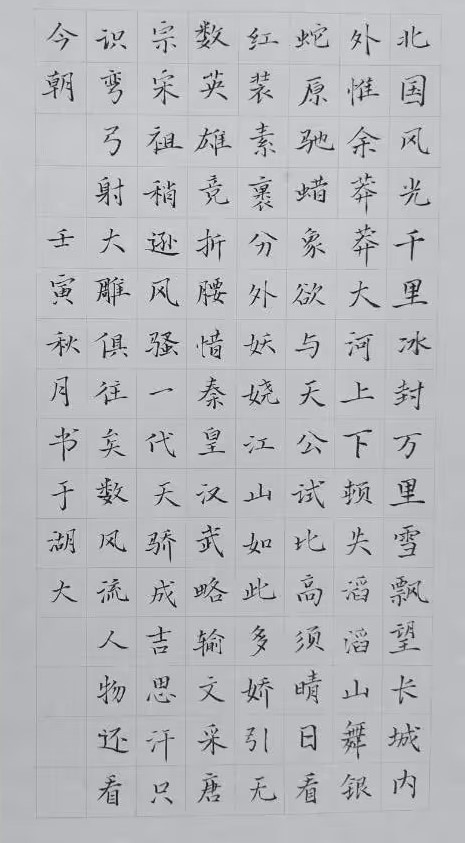 北国风光千里冰封万里雪飘望长城内
外惟余莽莽大河上下顿失滔滔山舞银
蛇原驰蜡象欲与天公试比高须晴日看
红装素裹分外妖娆江山如此多娇引无
数英雄竞折腰惜秦皇汉武略输文采唐
宗宋祖稍逊风骚一代天骄成吉思汗只
识弯弓射大雕俱往矣数风流人物还看
今朝 壬寅秋月书于湖大